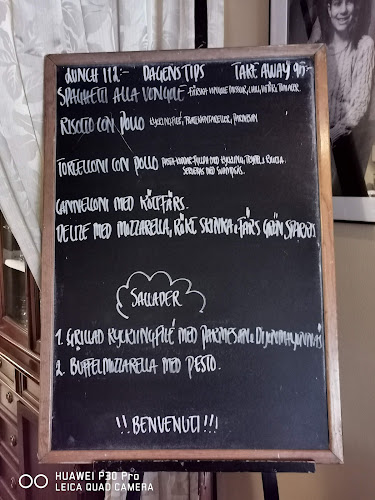 LUNCH 112:- DAGENS TIPS TAKE AWAY 95:-
SPAGHETTI ALLA VONGOLE - FÄRSKA VONGOLE MUSSLOR, CHILI, VITLÖK, TOMATER
RISOTTO CON POLLO KYCKLINGFILÉ, PARMESAN
TORTELLONI CON POLLO MED KYCKLING,
SERVERAS MED
CANNELLONI MED KÖTTFÄRS.
DELIZE MED MOZZARELLA, RÖKT SKINKA & FÄRS GRÖN SPARRIS
SALLADER
1. GRILLAD KYCKLINGFILÉ MED PARMESAN & DIJONMAJONNÄS
2. BUFFELMOZZARELLA MED PESTO.
!! BENVENUTI!!!
HUAWEI P30 Pro
LEICA QUAD CAMERA